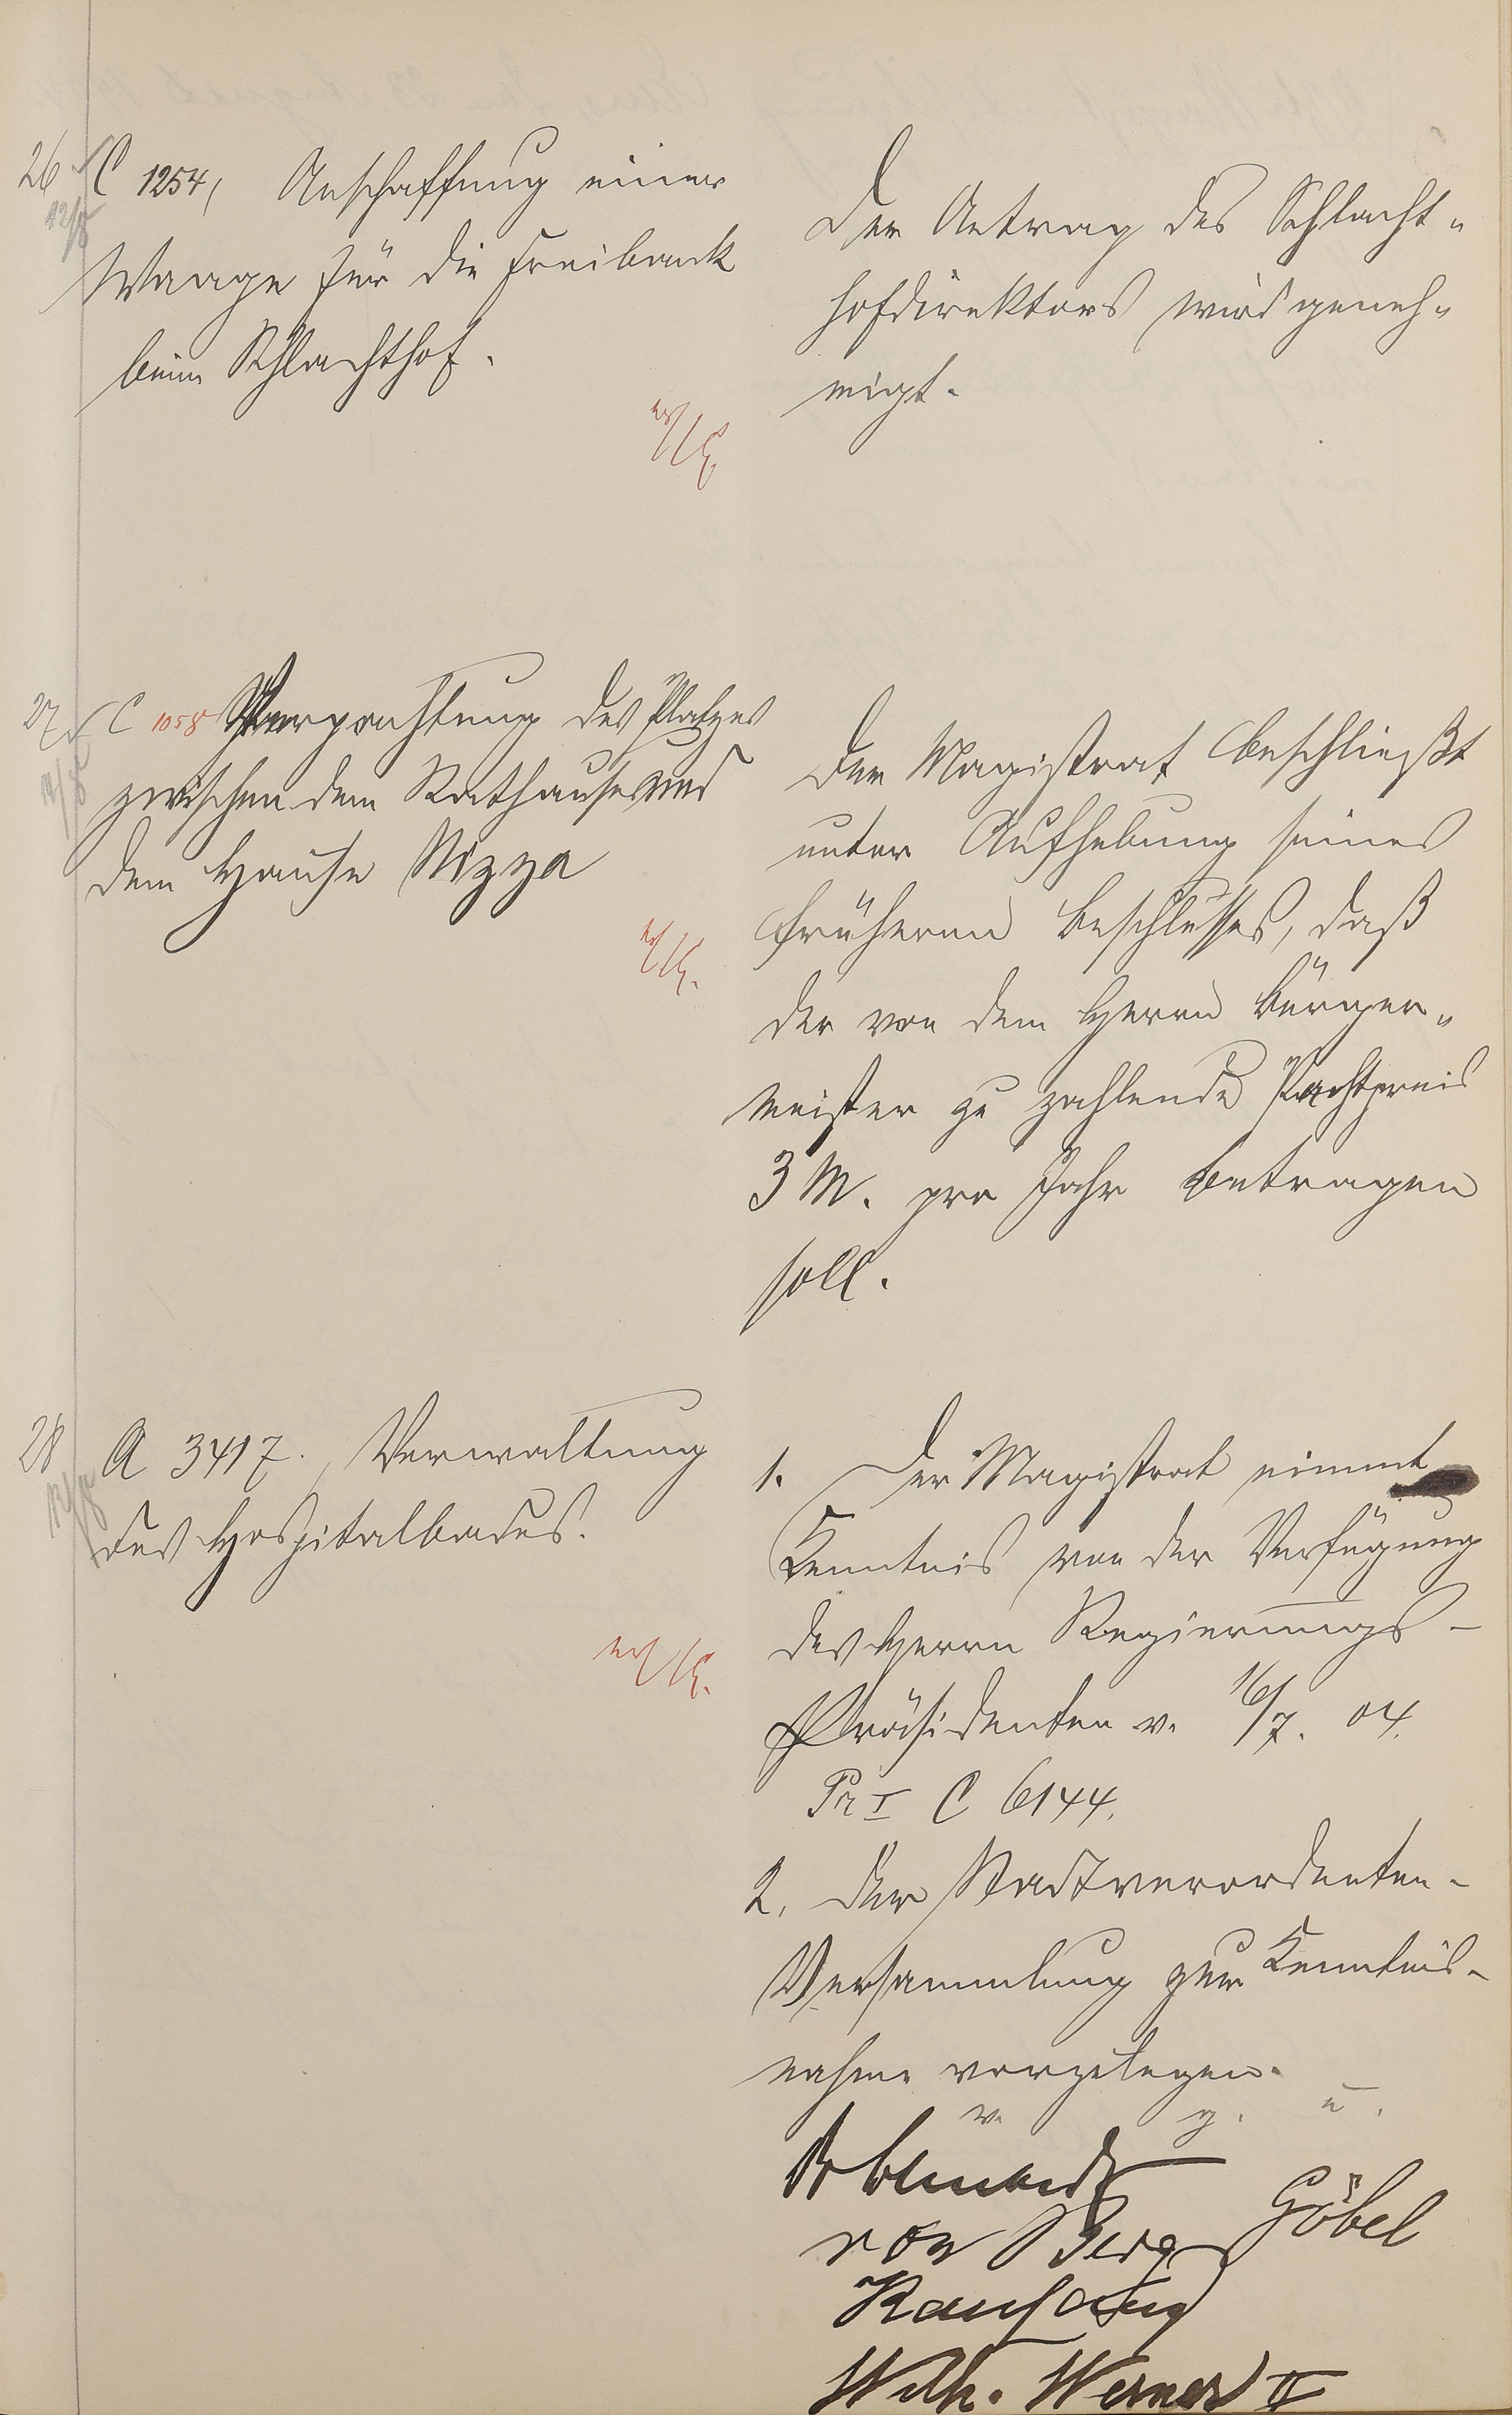 26 C 1254, Anschaffung einer
12/8
Waage für die Freibank
beim Schlachthof.
Der Antrag des Schlacht-
hofdirektors wird geneh-
migt.
27 C 1058 Verpachtung des Platzes
zwischen dem Rathause und
dem Hause Nizza
Der Magistrat beschließt
unter Aufhebung seines
früheren Beschlusses, daß
der von dem Herrn Bürger-
meister zu zahlende Pachtpreis
3 M. pro Jahr betragen
soll.
28 A 3417. Verwaltung
des Hospitalbades.
1. Der Magistrat nimmt
Kenntnis von der Verfügung
des Herrn Regierungs-
Präsidenten v. 16/7. 04.
Pr I C 6144.
2. Der Stadtverordneten-
Versammlung zur Kenntnis-
nahme vorzulegen.
v. g. u.
von Berg Göbel
Wilh. Werner II